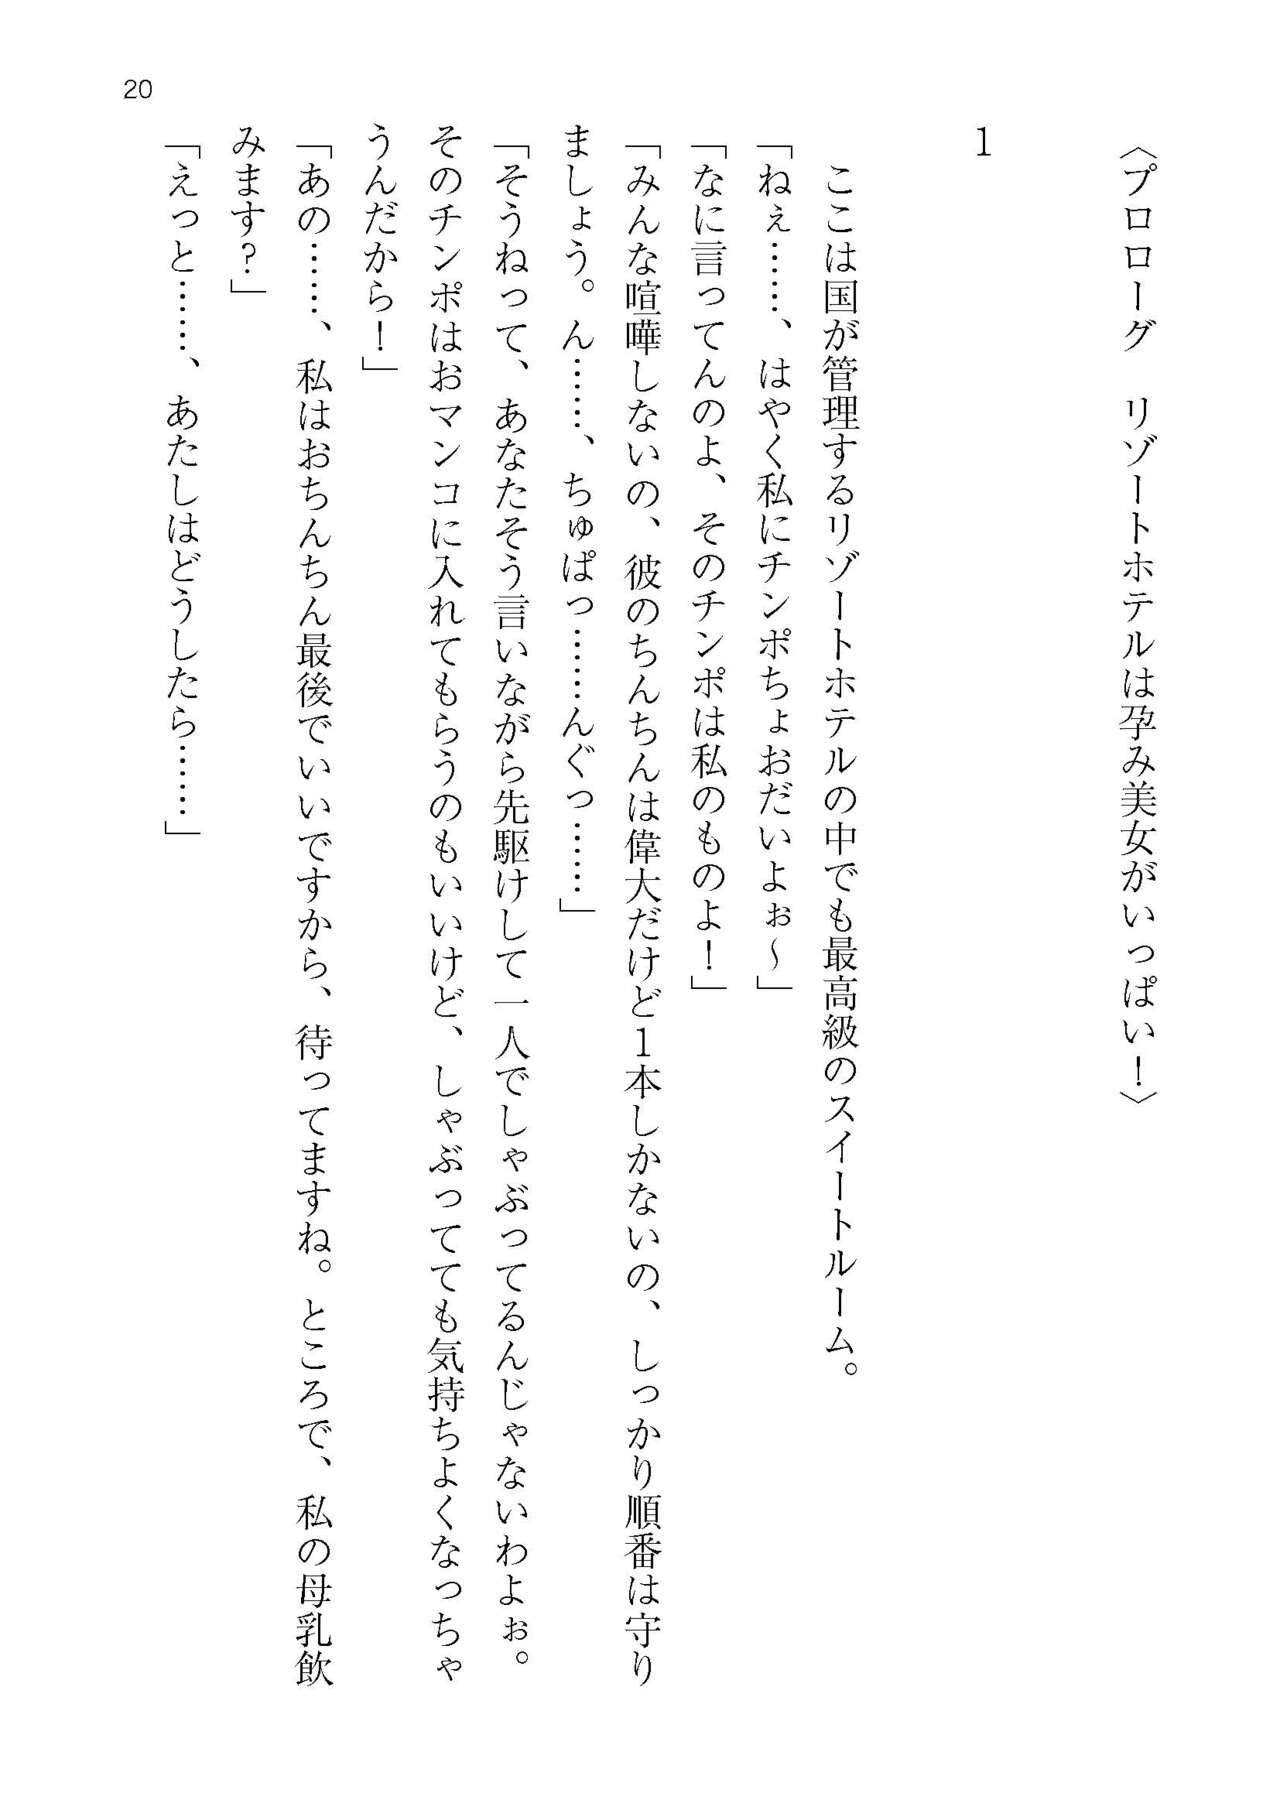 〈プロローグ　リゾートホテルは孕み美女がいっぱい！〉
1
　ここは国が管理するリゾートホテルの中でも最高級のスイートルーム。
「ねぇ……、はやく私にチンポちょおだいよぉ～」
「なに言ってんのよ、そのチンポは私のものよ！」
「みんな喧嘩しないの、彼のちんちんは偉大だけど1本しかないの、しっかり順番は守り
ましょう。ん……、ちゅぱっ……んぐっ……」
「そうねって、あなたそう言いながら先駆けして一人でしゃぶってるんじゃないわよぉ。
そのチンポはおマンコに入れてもらうのもいいけど、しゃぶってても気持ちよくなっちゃ
うんだから！」
「あの……、私はおちんちん最後でいいですから、待ってますね。ところで、私の母乳飲
みます？」
「えっと……、あたしはどうしたら……」
20